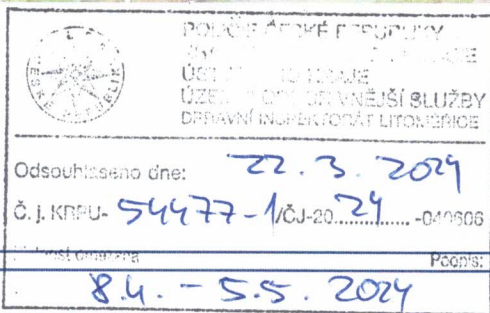 POLICIE ČESKÉ REPUBLIKY
KRAJE
ÚZEMNÍ ODBOR VNĚJŠÍ SLUŽBY
DOPRAVNÍ INSPEKTORÁT LITOMĚŘICE
Odsouhlaseno dne: 22. 3. 2024
Č. j. KRPU- 54477-1/ČJ-20 24 -040606
omezena Podpis:
8.4. - 5.5. 2024